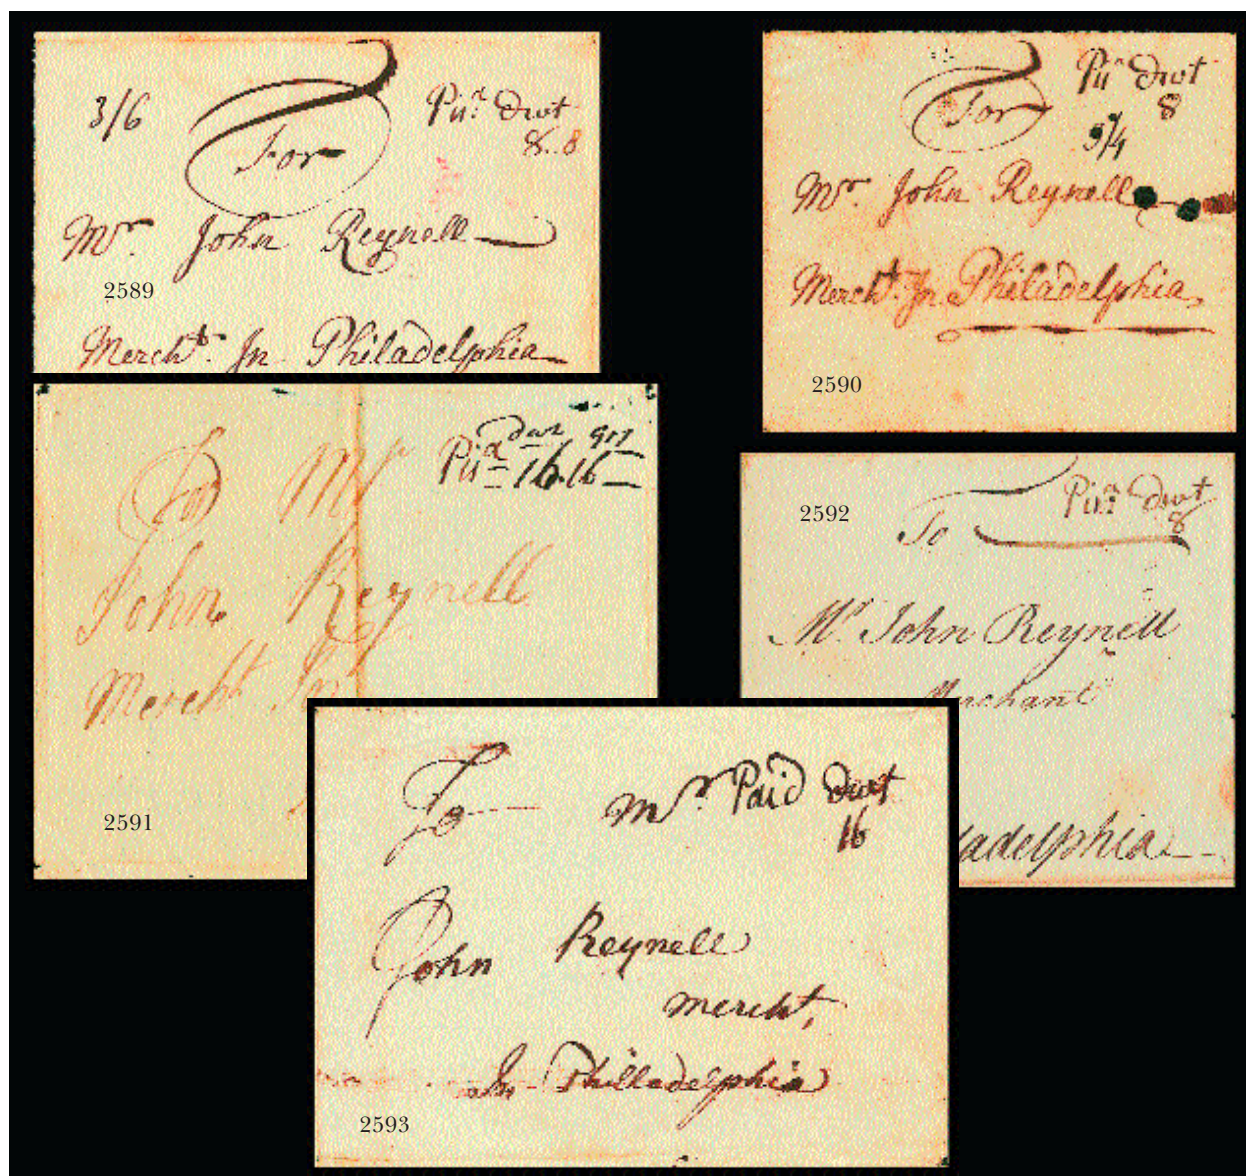 3/6 For Pd. dwt
8..8
Mr. John Reynell
2589
Mercht. In Philadelphia
For Pd dwt
8
3/4
Mr. John Reynell
Mercht. In Philadelphia
2590
For Mr Pd dwt grs
16.16
John Reynell
Mercht In
2591
2592
To Pd. dwt
8
Mr. John Reynell
Merchant
ladelphia
To Mr. Paid dwt
16
John Reynell
mercht,
In Philladelphia
2593